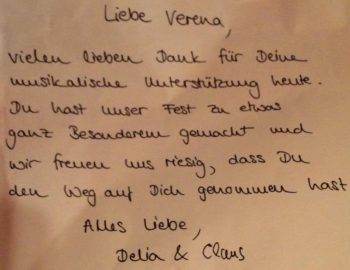 Liebe Verena,
vielen lieben Dank für Deine
musikalische Unterstützung heute.
Du hast unser Fest zu etwas
ganz Besonderem gemacht und
wir freuen uns riesig, dass Du
den Weg auf Dich genommen hast
Alles Liebe,
Delia & Claus